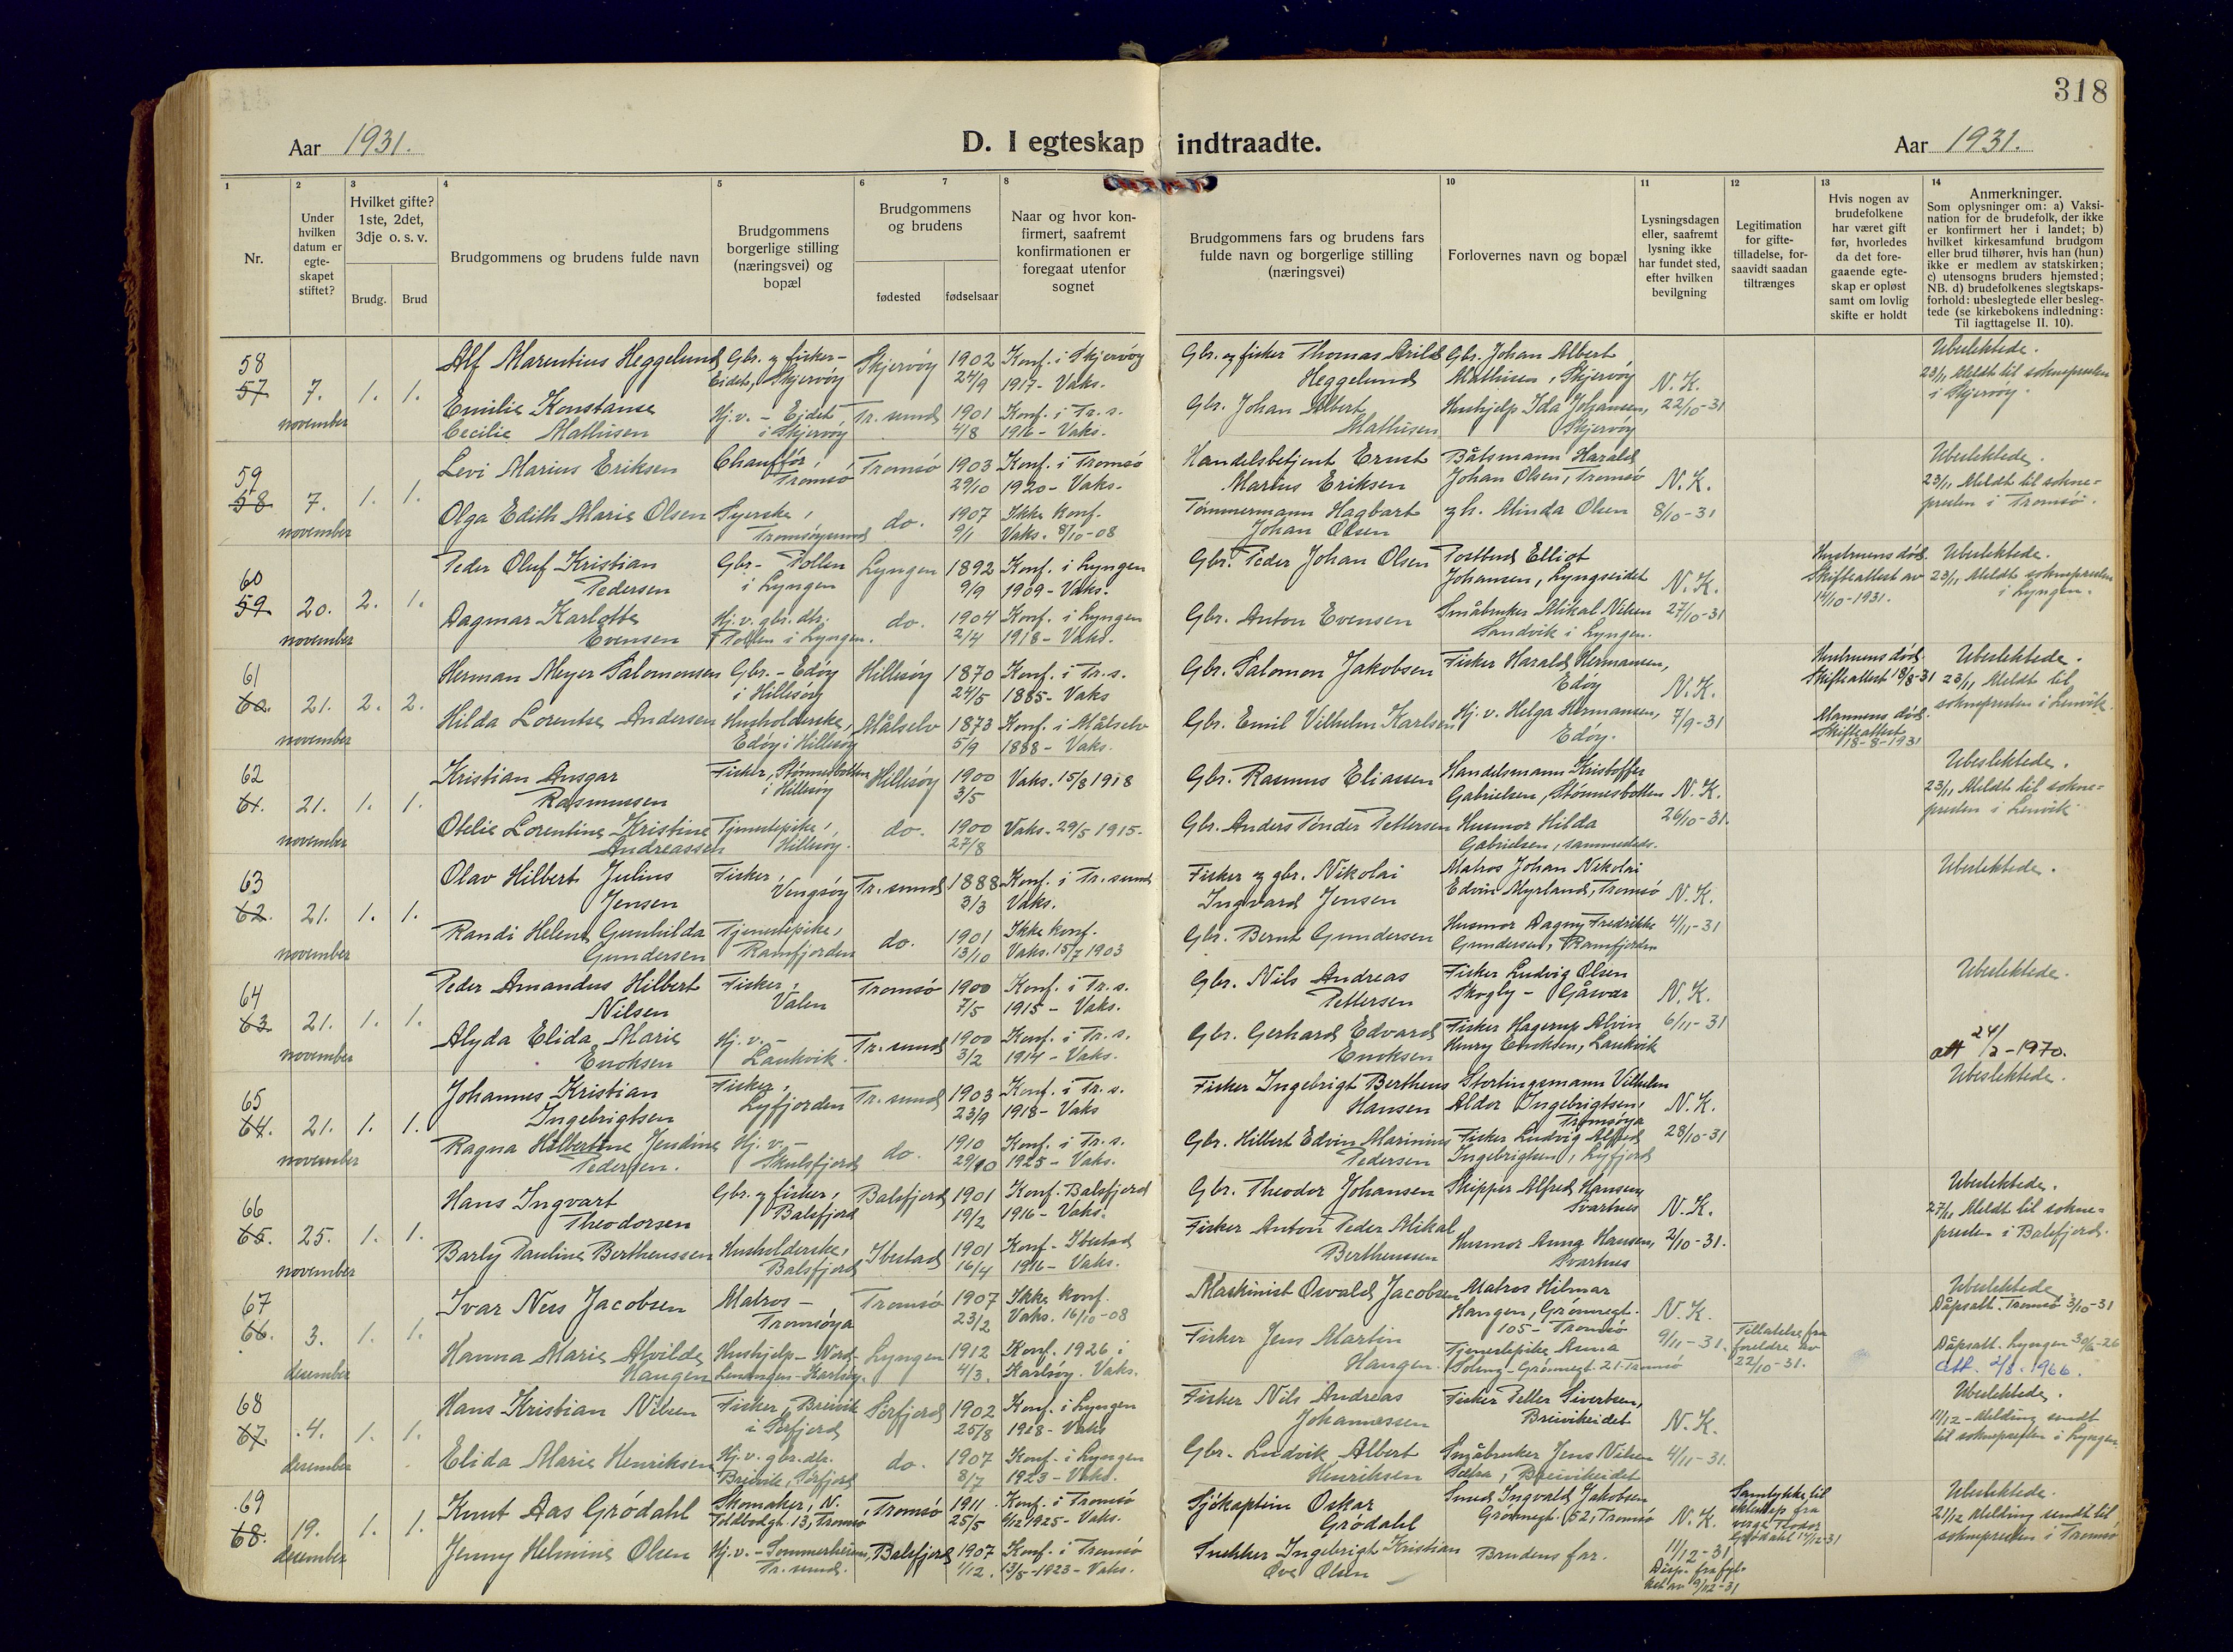 318
Aar 1931.
D. I egteskap indtraadte.
Aar 1931.
1 2 3 4 5 6 7 8 9 10 11 12 13 14
Nr.
Under hvilken datum er egte-skapet stiftet?
Hvilket gifte? 1ste, 2det, 3dje o. s. v.
Brudg. Brud
Brudgommens og brudens fulde navn
Brudgommens borgerlige stilling (næringsvei) og bopæl
Brudgommens og brudens
fødested fødselsaar
Naar og hvor kon-firmert, saafremt konfirmationen er foregaat utenfor sognet
Brudgommens fars og brudens fars fulde navn og borgerlige stilling (næringsvei)
Forlovernes navn og bopæl
Lysningsdagen eller, saafremt lysning ikke har fundet sted, efter hvilken bevilgning
Legitimation for gifte-tilladelse, for-saavidt saadan tiltrænges
Hvis nogen av brudefolkene har været gift før, hvorledes da det fore-gaaende egte-skap er opløst samt om lovlig skifte er holdt
Anmerkninger.
Som oplysninger om: a) Vaksi-nation for de brudefolk, der ikke er konfirmert her i landet; b) hvilket kirkesamfund brudgom eller brud tilhører, hvis han (hun) ikke er medlem av statskirken; c) utensogns bruders hjemsted; NB. d) brudefolkenes slegtskaps-forhold: ubeslegtede eller besleg-tede (se kirkebokens indledning: Til iagttagelse II. 10).
58
57. 7. november 1. 1.
Alf Marentius Heggelund
Gbr. og fisker - Eidet, Skjervøy
Skjervøy 1902 24/9
Konf. i Skjervøy 1917 - Vaks.
Gbr. og fisker Thomas Arild Heggelund
Gbr. Johan Albert Mathisen, Skjervøy
N. K. 22/10-31
Ubeslektede. 23/11 Meldt til sognepresten i Skjervøy.
Emilie Konstanse Cecilie Mathisen
Hj.v. - Eidet i Skjervøy
Tr.sund 1901 4/8
Konf. i Tr.s. 1916 - Vaks.
Gbr. Johan Albert Mathisen
Hushjelp Ida Johansen, Skjervøy
59
58. 7. november 1. 1.
Levi Marius Eriksen
Chauffør, Tromsø
Tromsø 1903 29/10
Konf. i Tromsø 1920 - Vaks.
Handelsbetjent Ernst Marius Eriksen
Båtsmann Harald Johan Olsen, Tromsø
N. K. 8/10-31
Ubeslektede. 23/11 Meldt til sokne-presten i Tromsø.
Olga Edith Marie Olsen
Syerske, Tromsøysund
do. 1907 9/1
Ikke konf. Vaks. 8/10-08
Tømmermann Hagbart Johan Olsen
og h. Minda Olsen
60
59. 20. november 2. 1.
Peder Oluf Kristian Pedersen
Gbr. - Pollen i Lyngen
Lyngen 1892 9/9
Konf. i Lyngen 1909 - Vaks.
Gbr. Peder Johan Olsen
Postbud Elliot Johansen, Lyngseidet
N. K. 27/10-31
Hustruens død. Skifteattest av 14/10-1931.
Ubeslektede. 23/11 Meldt soknepresten i Lyngen.
Dagmar Karlotte Evensen
Hj.v. gbr.dtr. Pollen i Lyngen.
do. 1904 2/4
Konf. i Lyngen 1918 - Vaks.
Gbr. Anton Evensen
Småbruker Mikal Nilsen Sandvik i Lyngen.
61
60. 21. november 2. 2.
Herman Meyer Salomonsen
Gbr. - Edøy i Hillesøy
Hillesøy 1870 24/5
Konf. i Tr.s. 1885 - Vaks
Gbr. Salomon Jakobsen
Fisker Harald Hermansen, Edøy
N. K. 7/9-31
Hustruens død. Skifteattest 18/8-31
Ubeslektede. 23/11 Meldt til soknepresten i Lenvik.
Hilda Lorentse Andersen
Husholderske, Edøy i Hillesøy
Målselv 1873 5/9
Konf. i Målselv 1888 - Vaks.
Gbr. Emil Vilhelm Karlsen
Hj.v. Helga Hermansen, Edøy.
Mannens død. Skifteattest 18-8-1931
62
61. 21. november 1. 1.
Kristian Ansgar Rasmussen
Fisker, Stønnesbotten i Hillesøy
Hillesøy 1900 3/5
Vaks. 15/8 1918
Gbr. Rasmus Eliassen
Handelsmann Kristoffer Gabrielsen, Stønnesbotten
N. K. 26/10-31.
Ubeslektede. 23/11 Meldt til sokne-presten i Lenvik.
Otelie Lorentine Kristine Andreassen
Tjenestepike, Hillesøy.
do. 1900 27/8
Vaks. 29/5 1915.
Gbr. Anders Tønder Pettersen
Husmor Hilda Gabrielsen, sammesteds.
63
62. 21. november 1. 1.
Olav Hilbert Julius Jensen
Fisker, Vengsøy
Tr.sund 1888 3/3
Konf. i Tr.sund Vaks.
Fisker og gbr. Nikolai Ingvard Jensen
Matros Johan Nikolai Edvin Myrland, Tromsø
N. K. 4/11-31
Ubeslektede.
Randi Helene Gunhilda Gundersen
Tjenestepike, Ramfjorden
do. 1901 13/10
Ikke konf. Vaks. 15/7 1903
Gbr. Bernt Gundersen
Husmor Dagny Fredrikke Gundersen, Ramfjorden
64
63. 21. november 1. 1.
Peder Amandus Hilbert Nilsen
Fisker, Valen
Tromsø 1900 7/5
Konf. i Tr.s. 1915 - Vaks.
Gbr. Nils Andreas Pettersen
Fisker Ludvig Olsen Skogly - Gåsvær
N. K. 6/11-31
Ubeslektede.
Alyda Elida Marie Enoksen
Hj.v. - Laukvik.
Tr.sund 1900 3/2
Konf. i Tr.s. 1914 - Vaks.
Gbr. Gerhard Edvard Enoksen
Fisker Hagerup Alvin Henry Enoksen, Laukvik
att 24/2-1970.
65
64. 21. november 1. 1.
Johannes Kristian Ingebrigtsen
Fisker, Lyfjorden
Tr.sund 1903 23/9
Konf. i Tr.s. 1918 - Vaks
Fisker Ingebrigt Bertheus Hansen
Stortingsmann Vilhelm Aldor Ingebrigtsen, Tromsøya
N. K. 28/10-31
Ubeslektede.
Ragna Hilbertine Jendine Pedersen.
Hj.v. - Skulsfjord
do. 1910 29/10
Konf. i Tr.s. 1925 - Vaks.
Gbr. Hilbert Edvin Marinius Pedersen
Fisker Ludvig Alfred Ingebrigtsen, Lyfjord
66
65. 25. november 1. 1.
Hans Ingvart Theodorsen
Gbr. og fisker, Balsfjord
Balsfjord 1901 19/2
Konf. Balsfjord 1916 - Vaks.
Gbr. Theodor Johansen
Skipper Alfred Hansen, Svartnes
N. K. 2/10-31.
Ubeslektede. 27/11 Meldt til sokne-presten i Balsfjord.
Barly Pauline Bertheussen
Husholderske, Balsfjord
Ibestad 1901 16/4
Konf. - Ibestad 1916 - Vaks.
Fisker Anton Peder Mikal Bertheussen
Husmor Anna Hansen, Svartnes
67
66. 3. desember 1. 1.
Ivar Ness Jacobsen
Matros - Tromsøya
Tromsø 1907 23/2
Ikke konf. Vaks. 16/10-08
Maskinist Osvald Jacobsen
Matros Hilmar Haugen, Grønnegt. 105 - Tromsø
N. K. 9/11-31.
Tillatelse fra foreldre av 22/10-31.
Ubeslektede Dåpsatt. Tromsø 3/10-31
Hanna Marie Alvilde Haugen
Hushjelp - Nord-Lenangen - Karlsøy.
Lyngen 1912 4/3.
Konf. 1926 i Karlsøy. Vaks.
Fisker Jens Martin Haugen.
Tjenestepike Anna Soleng - Grønnegt. 21 - Tromsø
Dåpsatt. Lyngen 30/6-26
Att. 2/8. 1966.
68
67. 4. desember 1. 1.
Hans Kristian Nilsen
Fisker, Breivik i Sørfjord
Sørfjord 1902 25/8
Konf. i Lyngen 1918 - Vaks
Fisker Nils Andreas Johannessen
Fisker Petter Sivertsen, Breivikeidet
N. K. 4/11-31.
Ubeslektede. 11/12 - Melding sendt til soknepresten i Lyngen.
Elida Marie Henriksen
Hj.v. gbr.dtr. Breivik, Sørfjord
do. 1907 8/7
Konf. i Lyngen 1923 - Vaks.
Gbr. Ludvik Albert Henriksen
Småbruker Jens Nilsen Sætra i Breivikeidet
69
68. 19. desember 1. 1.
Knut Aas Grødahl
Skomaker, N. Toldbodgt. 13, Tromsø
Tromsø 1911 25/5
Konf. i Tromsø 6/12 1925 - Vaks.
Sjøkaptein Oskar Grødahl
Smed Ingvald Jakobsen Grønnegt. 52, Tromsø
N. K. 11/12-31
Samtykke til ekteskap fra verge Theodor Grødahl 14/12-31
Ubeslektede. 21/12 Melding sendt til soknepresten i Tromsø
Jenny Helmine Olsen
Hj.v. - Sommerheim, Tr.sund.
Balsfjord 1907 1/12.
Konf. i Tromsø 13/5-1923 - Vaks.
Snekker Ingebrigt Kristian Ove Olsen
Brudens far.
Disp. fra fyl- av 19/12-31